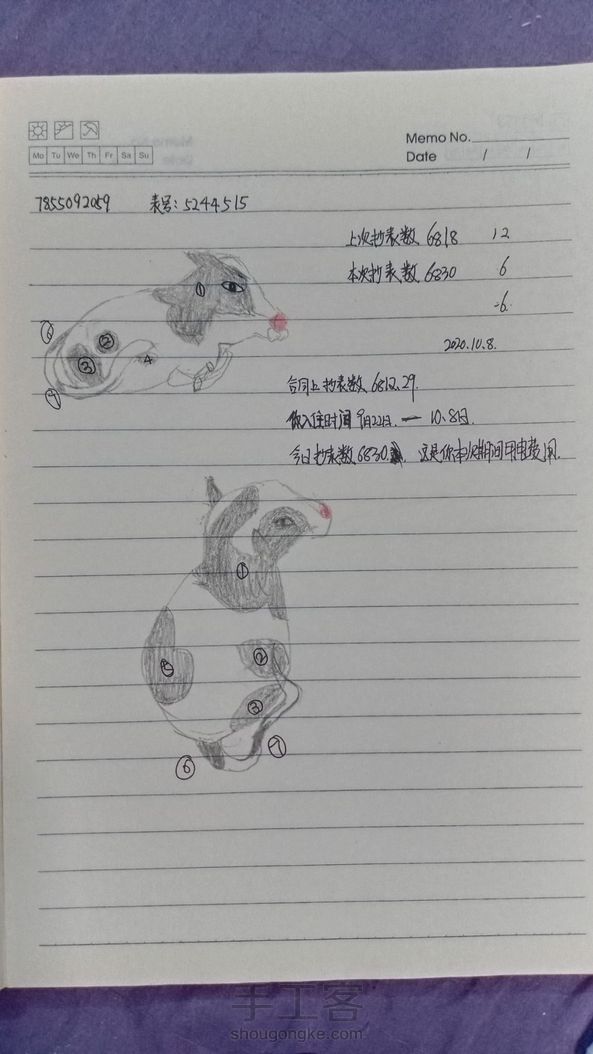 Memo No.
Mo Tu We Th Fr Sa Su
Date / /
7855092059 表号：5244515
上次抄表数 6818 12
本次抄表数 6830 6
-6
2020.10.8.
①
②
③
4
⑥
⑦
合同上抄表数 6812.29.
你入住时间 9月22日. — 10.8日.
今日抄表数 6830. 这是你本次期间用电费用.
①
②
③
⑤
⑥
⑦
手工客
shougongke.com